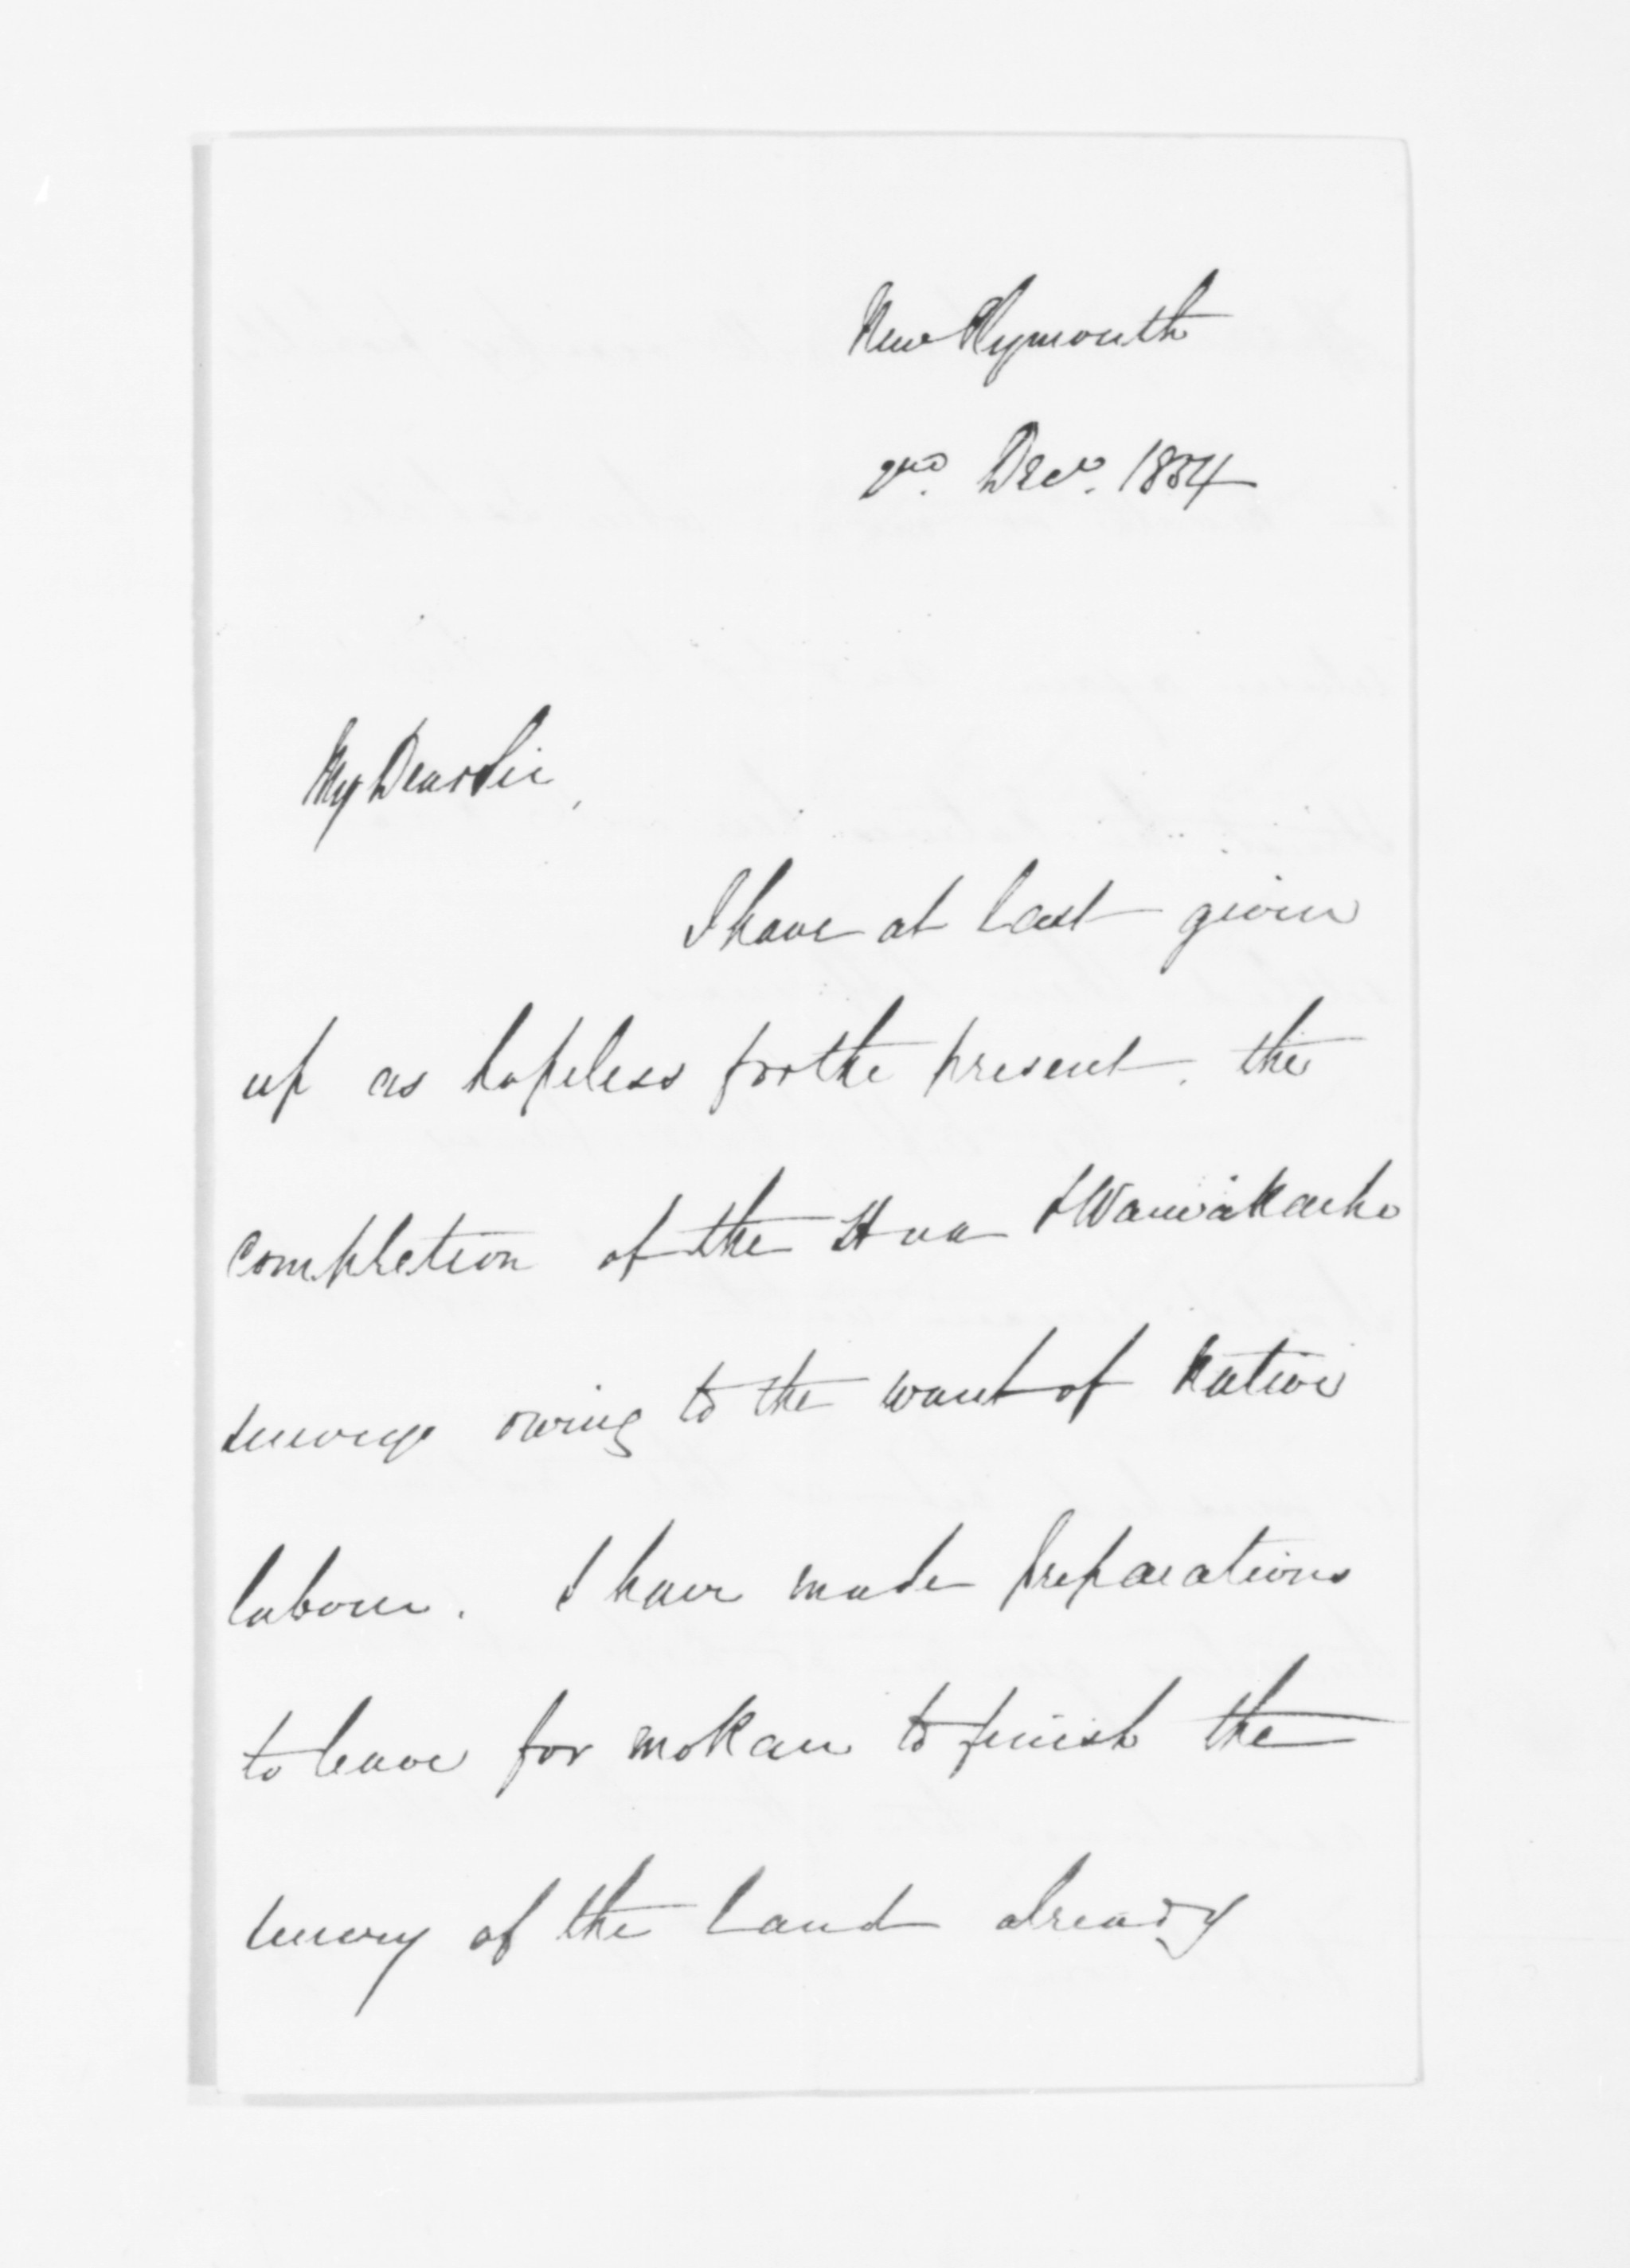 New Plymouth
2nd. Decr. 1854
My Dear Sir,
I have at last given
up as hopeless for the present, the
completion of the Hua & Waiwakaiho
surveys owing to the want of Native
labour. I have made preparations
to leave for mokau to finish the
survey of the land already